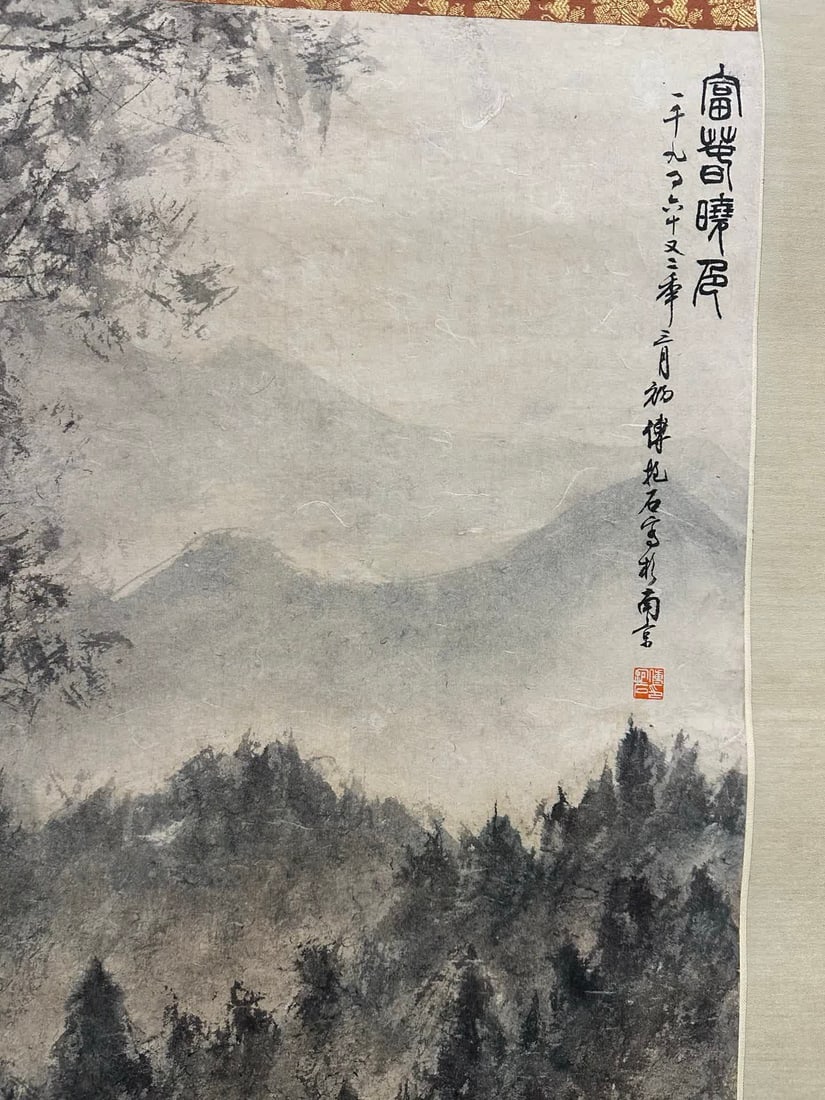 富春曉色
一千九百六十又二年三月初傅抱石寫於南京